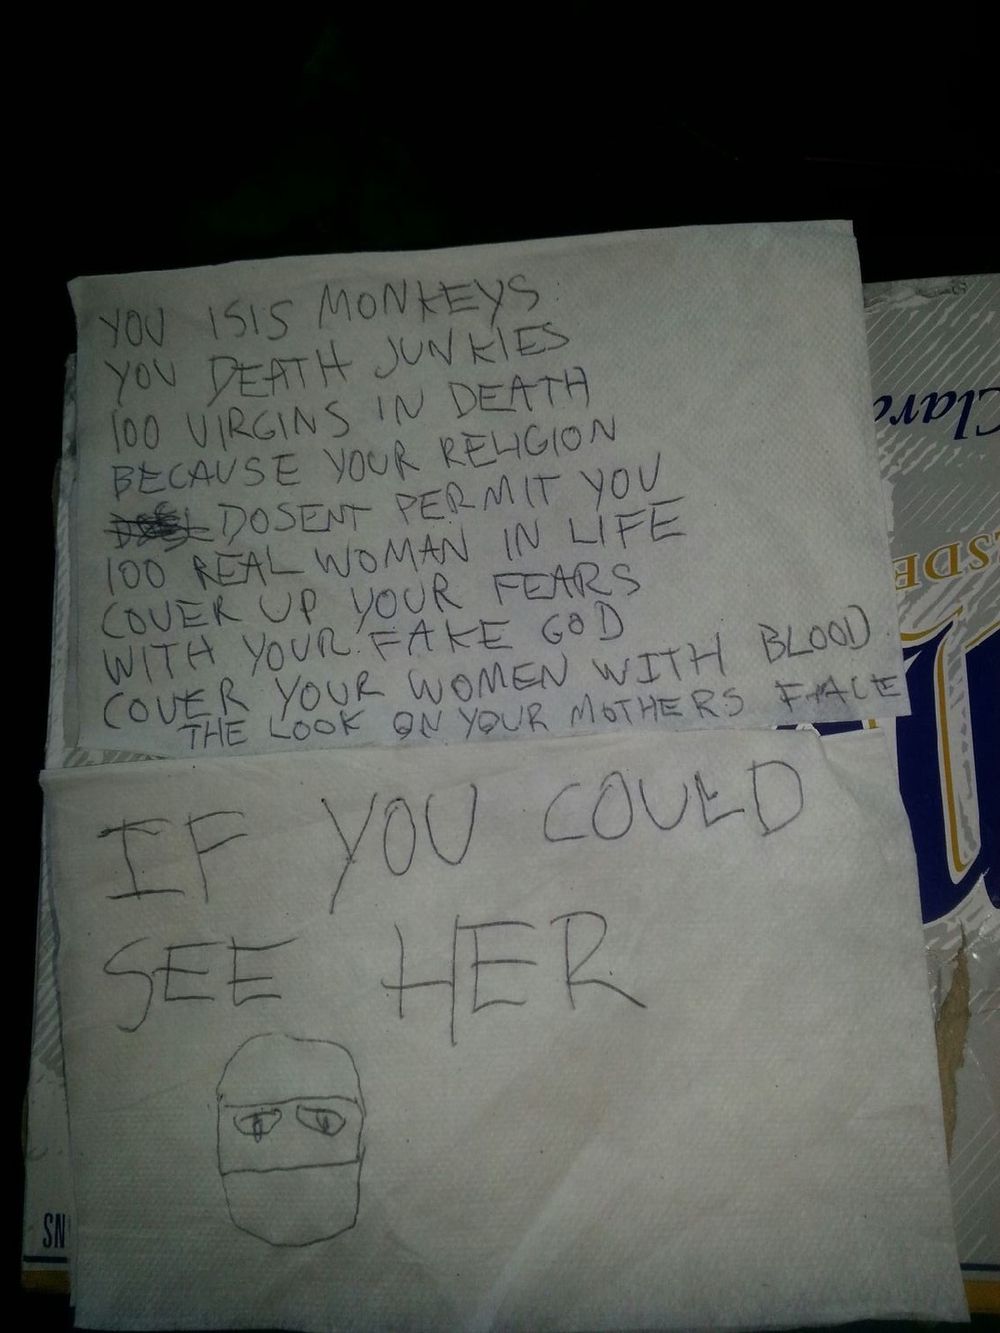 YOU ISIS MONKEYS
YOU DEATH JUNKIES
100 VIRGINS IN DEATH
BECAUSE YOUR RELIGION
DOSENT PERMIT YOU
100 REAL WOMAN IN LIFE
COVER UP YOUR FEARS
WITH YOUR FAKE GOD
COVER YOUR WOMEN WITH BLOOD
THE LOOK ON YOUR MOTHERS FACE
IF YOU COULD
SEE HER
SN